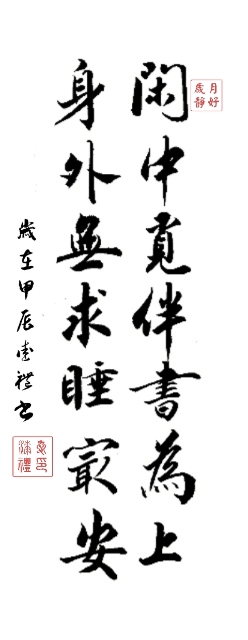 月好
歲靜
閑中覓伴書為上
身外無求睡㝡安
歲在甲辰 禮書